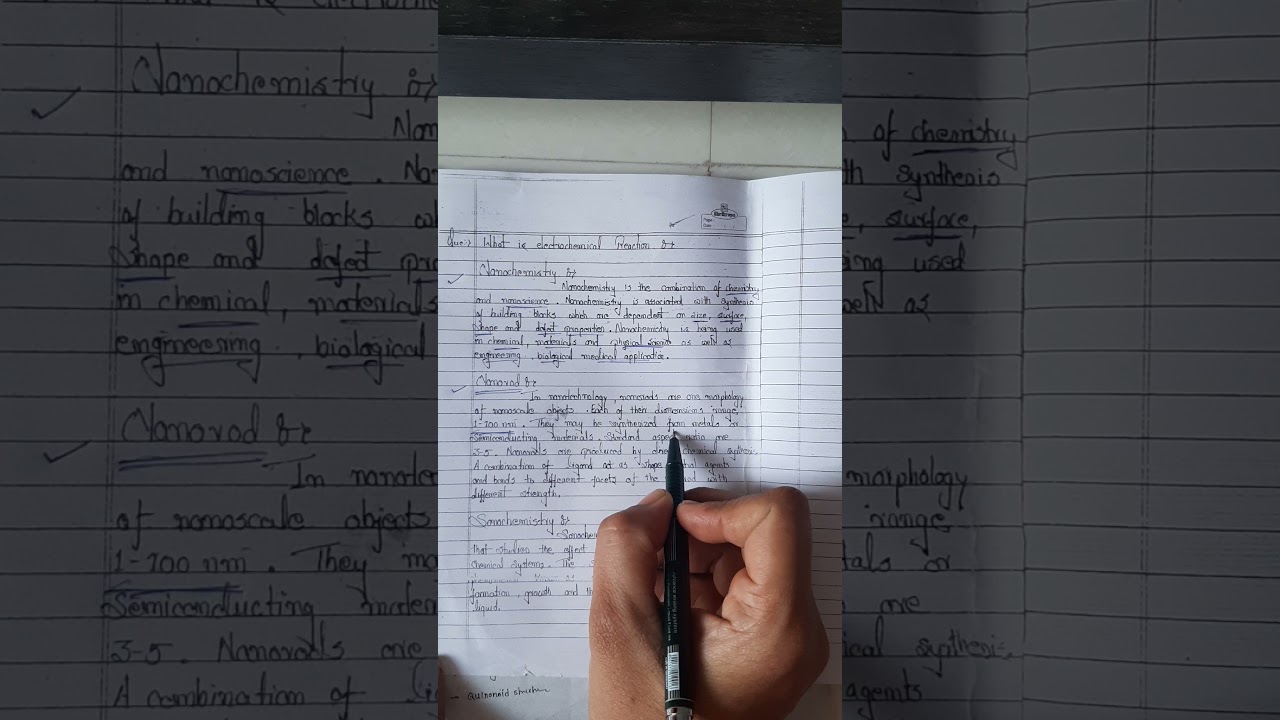 Que:→ What is electrochemical Reaction :→
Nanochemistry :→
Nanochemistry is the combination of chemistry
and nanoscience. Nanochemistry is associated with synthesis
of building blocks which are dependent on size, surface,
Shape and defect properties. Nanochemistry is being used
in chemical, materials and physical science as well as
engineering, biological medical application.
Nanorod :→
In nanotechnology, nanorods are one morphology
of nanoscale objects. Each of their dimensions range
1-100 nm. They may be synthesized from metals or
Semiconducting materials. Standard aspect ratio are
3-5. Nanorods are produced by direct chemical synthesis.
A combination of ligand act as shape agents
and bonds to different facets of the with
different strength.
Sonochemistry :→
That studies the effect
chemical systems. The
formation, growth and
liquid.
→ Quinonoid structure